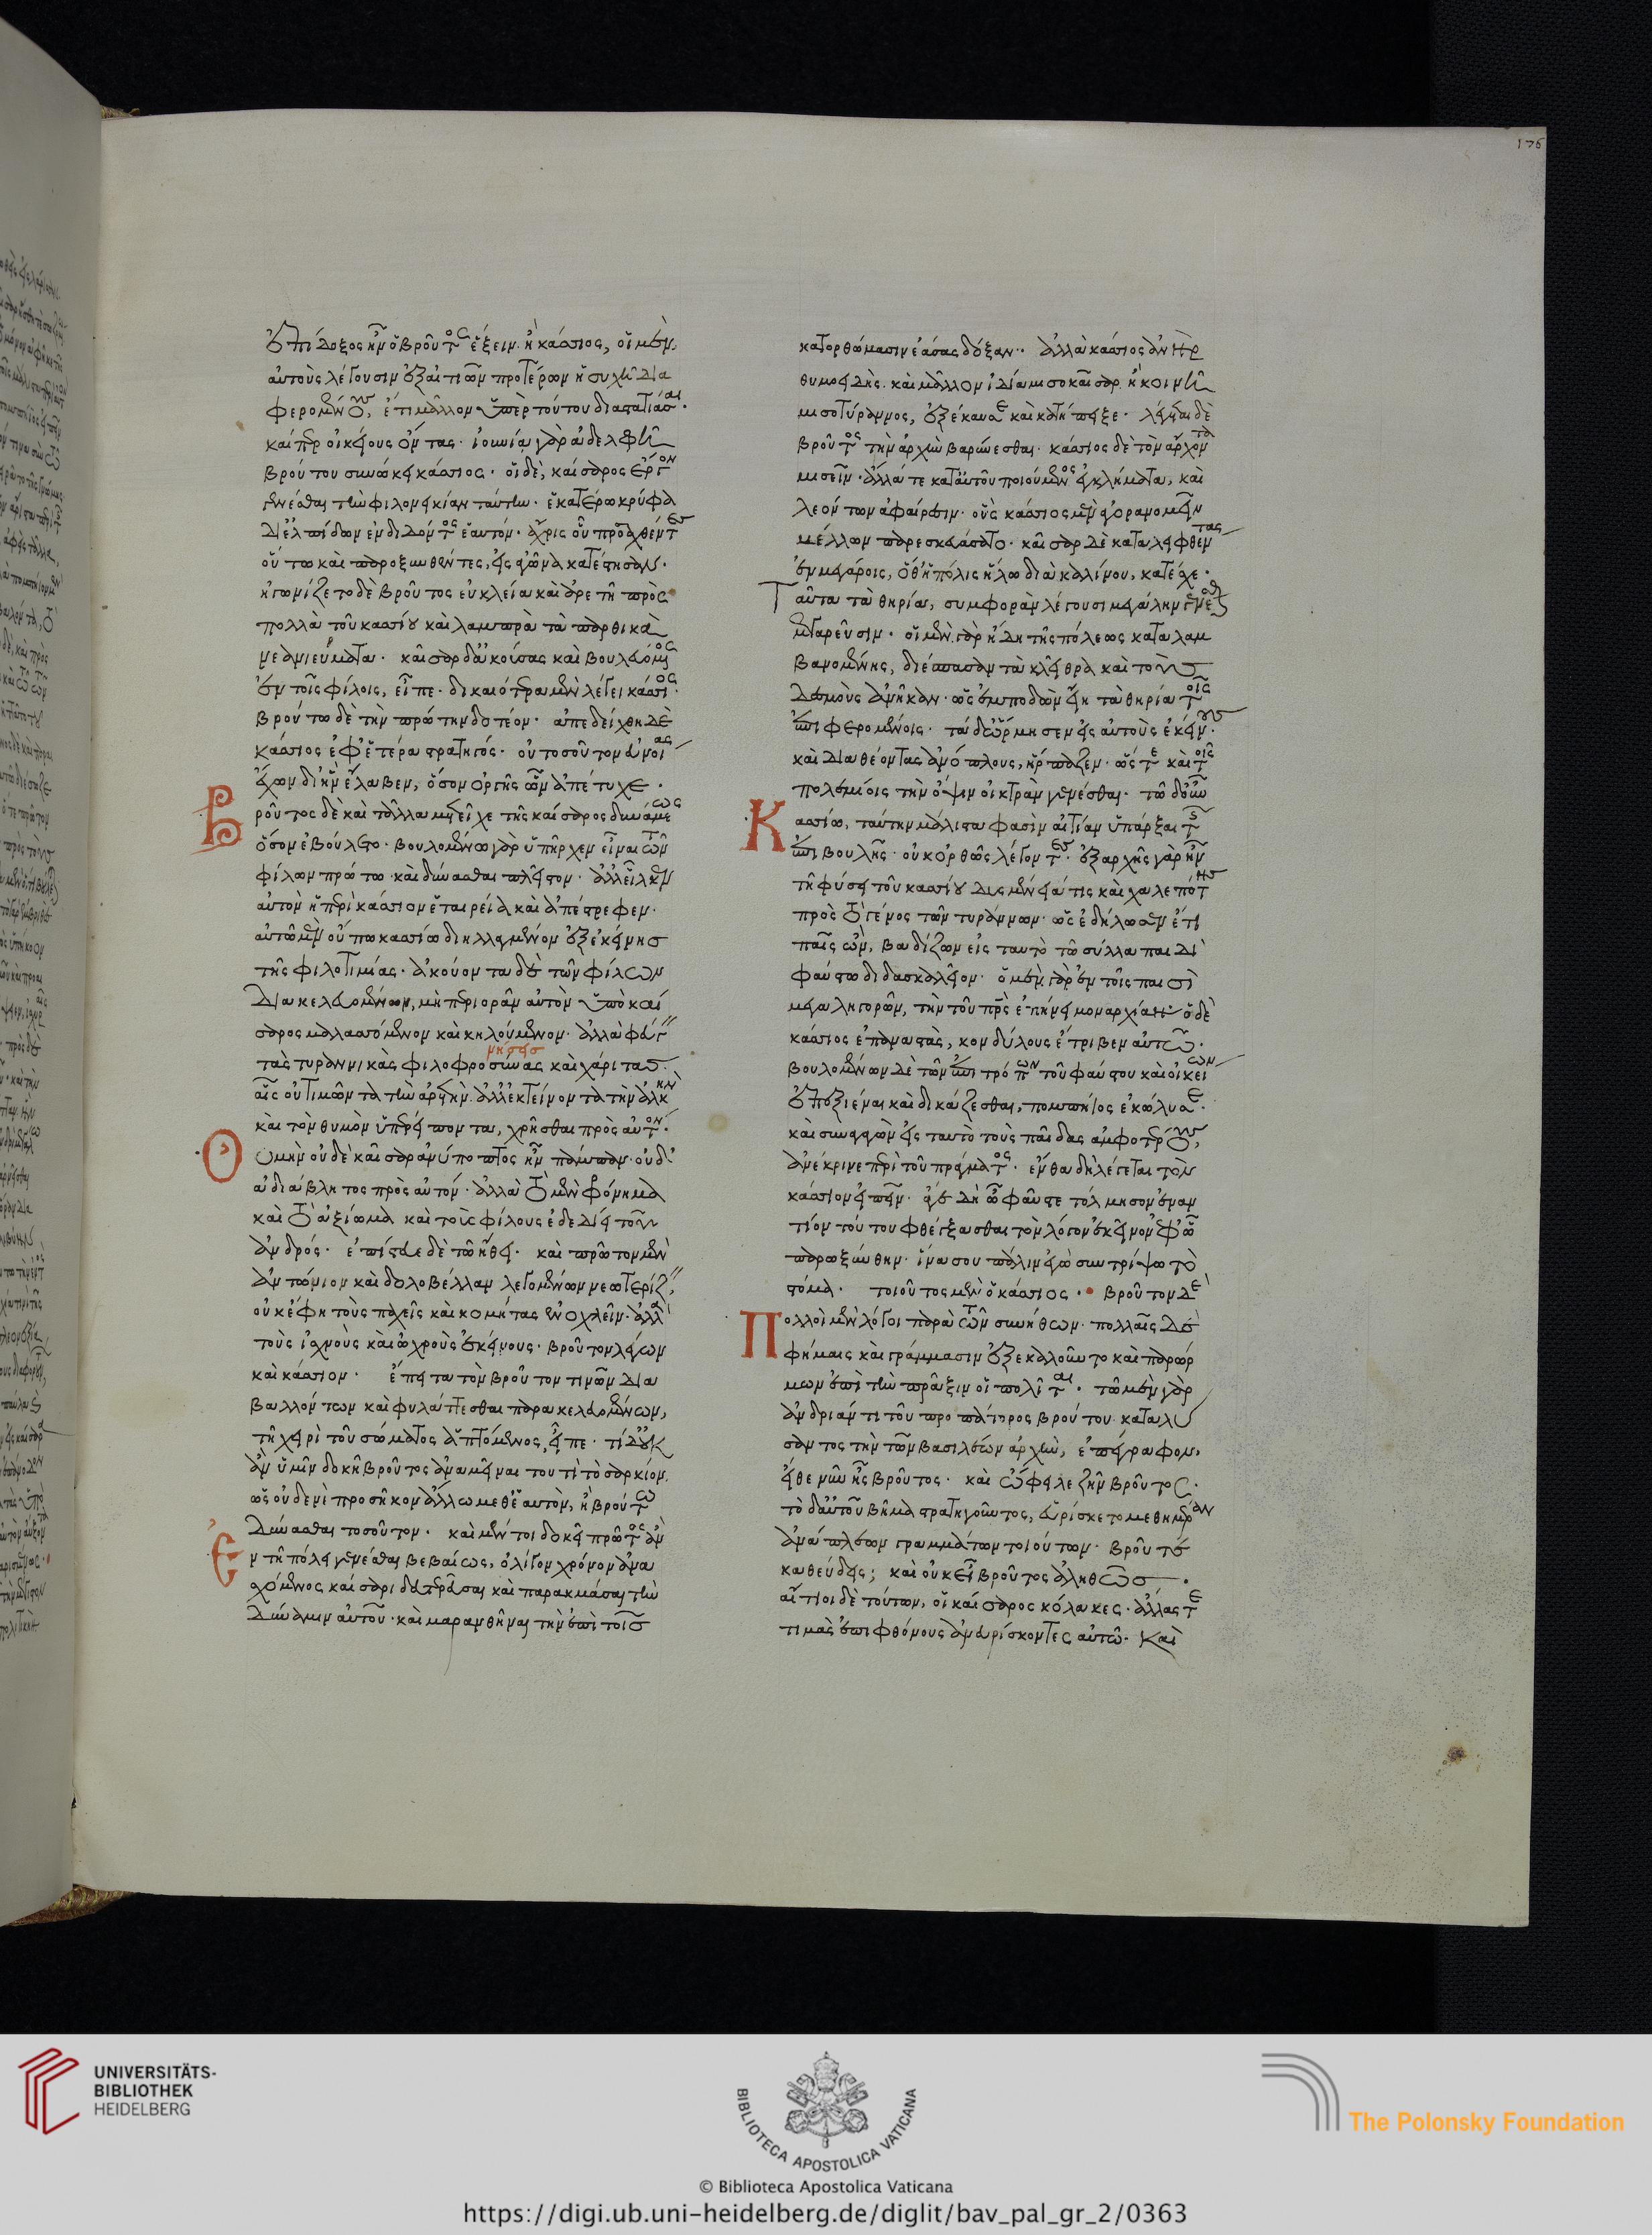 ἐπίδοξος ἦν ὁ βροῦτος ἕξειν ἢ κάσσιος, οἱ μὲν
αὐτοὺς λέγουσιν ἐξ αἰτιῶν προτέρων ἡσυχῆ δια
φερομένους, ἔτι μᾶλλον ὑπὲρ τούτου διαστασιάσαι·
καίπερ οἰκείους ὄντας· ἰουνία γὰρ ἀδελφῆ
βρούτου συνώκει κάσσιος· οἱ δὲ, καίσαρος ἔργον
γενέσθαι τὴν φιλονεικίαν ταύτην· ἑκατέρω κρύφα
δι' ἐλπίδων ἐνδιδόντος ἑαυτόν· ἄχρις οὗ προαχθέντες
οὕτω καὶ παροξυνθέντες, εἰς ἀγῶνα κατέστησαν.
ἠγωνίζετο δὲ βροῦτος εὐκλεία καὶ ἀρετῆ πρὸς
πολλὰ τοῦ κασσίου καὶ λαμπρὰ τὰ παρθικὰ
νεανιεύματα· καῖσαρ δ' ἀκούσας καὶ βουλευόμενος
ἐν τοῖς φίλοις, εἶπε· δικαιότερα μὲν λέγει κάσσιος·
βρούτω δὲ τὴν πρώτην δοτέον· ἀπεδείχθη δὲ
κάσσιος ἐφ' ἑτέρα στρατηγός· οὐ τοσοῦτον εὐνοίας
ἔχων δι' ἣν ἔλαβεν, ὅσον ὀργῆς ὧν ἀπέτυχε·
Βροῦτος δὲ καὶ τἄλλα μετεῖχε τῆς καίσαρος δυνάμεως
ὅσον ἐβούλετο· βουλομένω γὰρ ὑπῆρχεν εἶναι τῶν
φίλων πρώτω καὶ δύνασθαι πλεῖστον· ἀλλ' εἷλκεν
αὐτὸν ἡ περὶ κάσσιον ἑταιρεία καὶ ἀπέστρεφεν·
αὐτῶ μὲν οὔπω κασσίω διηλλαγμένον ἐξ ἐκείνης
τῆς φιλοτιμίας· ἀκούοντα δὲ τῶν φίλων
διακελευομένων, μὴ περιορᾶν αὐτὸν ὑπὸ καί
σαρος μαλασσόμενον καὶ κηλούμενον· ἀλλὰ φεύγειν
τὰς τυραννικὰς φιλοφροσύνας καὶ χάριτας·
αἷς οὐ τιμῶντα τὴν ἀρετὴν· ἀλλ' ἐκτέμνοντα τὴν ἀλκὴν
καὶ τὸν θυμὸν ὑπερείποντα, χρῆσθαι πρὸς αὐτόν·
Οὐ μὴν οὐδὲ καῖσαρ ἀνύποπτος ἦν πάμπαν· οὐδ'
ἀδιάβλητος πρὸς αὐτόν· ἀλλὰ τὸ μὲν φρόνημα
καὶ τὸ ἀξίωμα καὶ τοὺς φίλους ἐδεδίει τοῦ
ἀνδρός· ἐπίστευε δὲ τῶ ἤθει· καὶ πρῶτον μὲν
ἀντώνιον καὶ δολοβέλλαν λεγομένων νεωτερίζειν,
οὐκ ἔφη τοὺς παχεῖς καὶ κομήτας ἐνοχλεῖν· ἀλλὰ
τοὺς ἰσχνοὺς καὶ ὠχροὺς ἐκείνους· βροῦτον λέγων
καὶ κάσσιον· ἔπειτα τὸν βροῦτον τινῶν δια
βαλλόντων καὶ φυλάττεσθαι παρακελευομένων,
τῆ χειρὶ τοῦ σώματος ἁπτόμενος, εἶπε· τί δ' οὐκ
ἂν ὑμῖν δοκῆ βροῦτος ἀναμεῖναι τουτὶ τὸ σαρκίον.
ὡς οὐδενὶ προσῆκον ἄλλω μεθ' ἑαυτὸν, ἢ βρούτω
δύνασθαι τοσοῦτον· καὶ μέντοι δοκεῖ πρῶτος ἂν
ἐν τῆ πόλει γενέσθαι βεβαίως, ὀλίγον χρόνον ἀνα
σχόμενος καίσαρι δευτερᾶσαι καὶ παρακμάσαι τὴν
δύναμιν αὐτοῦ· καὶ μαρανθῆναι τὴν ἐπὶ τοῖς
κατορθώμασιν ἐάσας δόξαν· ἀλλὰ κάσσιος ἀνὴρ
θυμοειδὴς· καὶ μᾶλλον ἰδία μισοκαῖσαρ ἢ κοινῆ
μισοτύραννος, ἐξέκαυσε καὶ κατήπειξε· λέγεται δὲ
βροῦτος τὴν ἀρχὴν βαρύνεσθαι· κάσσιος δὲ τὸν ἄρχοντα
μισεῖν· ἄλλά τε κατ' αὐτοῦ ποιούμενος ἐγκλήματα, καὶ
λεόντων ἀφαίρεσιν· οὓς κάσσιος μὲν ἀγορανομεῖν
μέλλων παρεσκευάσατο· καῖσαρ δὲ καταλειφθέντας
ἐν μεγάροις, ὅθ' ἡ πόλις ἥλω διὰ καλίνου, κατέσχε·
Ταῦτα τὰ θηρία, συμφορὰν λέγουσι μεγάλην γενέσθαι
μεγαρεῦσιν· οἱ μὲν γὰρ ἤδη τῆς πόλεως καταλαμ
βανομένης, διέσπασαν τὰ κλεῖθρα καὶ τοὺς
δεσμοὺς ἀνῆκαν· ὡς ἐμποδὼν εἴη τὰ θηρία τοῖς
ἐπιφερομένοις· τὰ δ' ὥρμησεν εἰς αὐτοὺς ἐκείνους·
καὶ διαθέοντας ἀνόπλους, ἥρπαζεν· ὥστε καὶ τοῖς
πολεμίοις τὴν ὄψιν οἰκτρὰν γενέσθαι· τῶ δ' οὖν
Κασσίω, ταύτην μάλιστα φασὶν αἰτίαν ὑπάρξαι τῆς
ἐπιβουλῆς· οὐκ ὀρθῶς λέγοντες· ἐξαρχῆς γὰρ ἦν
τῆ φύσει τοῦ κασσίου δυσμένειά τις καὶ χαλεπότης
πρὸς τὸ γένος τῶν τυράννων· ὡς ἐδήλωσεν ἔτι
παῖς ὢν, βαδίζων εἰς ταυτὸ τῶ σύλλα παιδὶ
φαύστω διδασκαλεῖον· ὁ μὲν γὰρ ἐν τοῖς παισὶ
μεγαληγορῶν, τὴν τοῦ πατρὸς ἐπήνει μοναρχίαν· ὁ δὲ
κάσσιος ἐπαναστὰς, κονδύλους ἐνέτριβεν αὐτῶ·
βουλομένων δὲ τῶν ἐπιτρόπων τοῦ φαύστου καὶ οἰκείων
ἐπεξιέναι καὶ δικάζεσθαι, πομπήϊος ἐκώλυσε·
καὶ συναγαγὼν εἰς ταυτὸ τοὺς παῖδας ἀμφοτέρους,
ἀνέκρινε περὶ τοῦ πράγματος· ἔνθα δὴ λέγεται τὸν
κάσσιον εἰπεῖν· ἄγε δὴ ὦ φαῦστε τόλμησον ἐναν
τίον τούτου φθέγξασθαι τὸν λόγον ἐκεῖνον ἐφ' ὧ
παρωξύνθην· ἵνα σου πάλιν ἐγὼ συντρίψω τὸ
στόμα· τοιοῦτος μὲν ὁ κάσσιος· βροῦτον δὲ
Πολλοὶ μὲν λόγοι παρὰ τῶν συνήθων· πολλαῖς δὲ
φήμαις καὶ γράμμασιν ἐξεκαλοῦντο καὶ παρώρ
μων ἐπὶ τὴν πρᾶξιν οἱ πολῖται· τῶ μὲν γὰρ
ἀνδριάντι τοῦ προπάτορος βρούτου καταλύ
σαντος τὴν τῶν βασιλέων ἀρχὴν, ἐπέγραφον,
εἴθε νῦν ἦς βροῦτος· καὶ ὤφειλε ζῆν βροῦτος·
τὸ δ' αὐτοῦ βῆμα στρατηγοῦντος, εὑρίσκετο μεθημέραν
ἀνάπλεων γραμμάτων τοιούτων· βροῦτε
καθεύδεις; καὶ οὐκ εἶ βροῦτος ἀληθῶς·
αἴτιοι δὲ τούτων, οἱ καίσαρος κόλακες· ἄλλας τε
τιμὰς ἐπιφθόνους ἀνευρίσκοντες αὐτῶ· καὶ
176
UNIVERSITÄTS-
BIBLIOTHEK
HEIDELBERG
BIBLIOTECA APOSTOLICA VATICANA
The Polonsky Foundation
© Biblioteca Apostolica Vaticana
https://digi.ub.uni-heidelberg.de/diglit/bav_pal_gr_2/0363